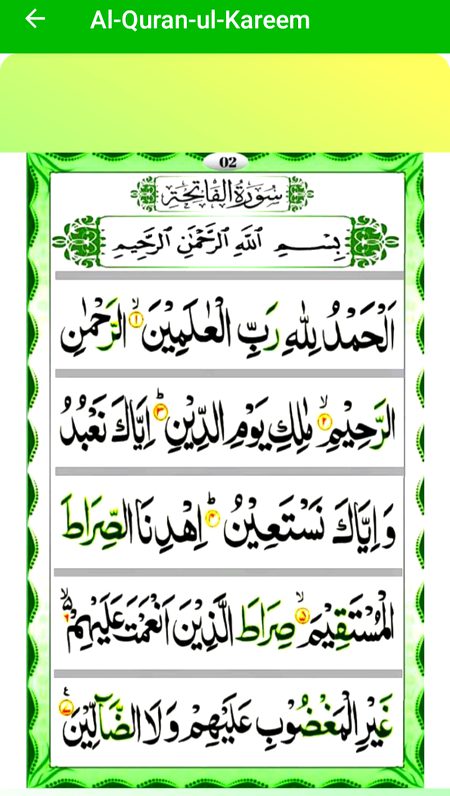 Al-Quran-ul-Kareem
02
سُوْرَةُ الْفَاتِحَةِ
بِسْمِ اللّٰهِ الرَّحْمٰنِ الرَّحِيْمِ
اَلْحَمْدُ لِلّٰهِ رَبِّ الْعٰلَمِيْنَۙ۱ الرَّحْمٰنِ
الرَّحِيْمِۙ۲ مٰلِكِ يَوْمِ الدِّيْنِؕ۳ اِيَّاكَ نَعْبُدُ
وَاِيَّاكَ نَسْتَعِيْنُؕ۴ اِهْدِنَا الصِّرَاطَ
الْمُسْتَقِيْمَۙ۵ صِرَاطَ الَّذِيْنَ اَنْعَمْتَ عَلَيْهِمْۙ۬۶
غَيْرِ الْمَغْضُوْبِ عَلَيْهِمْ وَلَا الضَّآلِّيْنَ۠۷